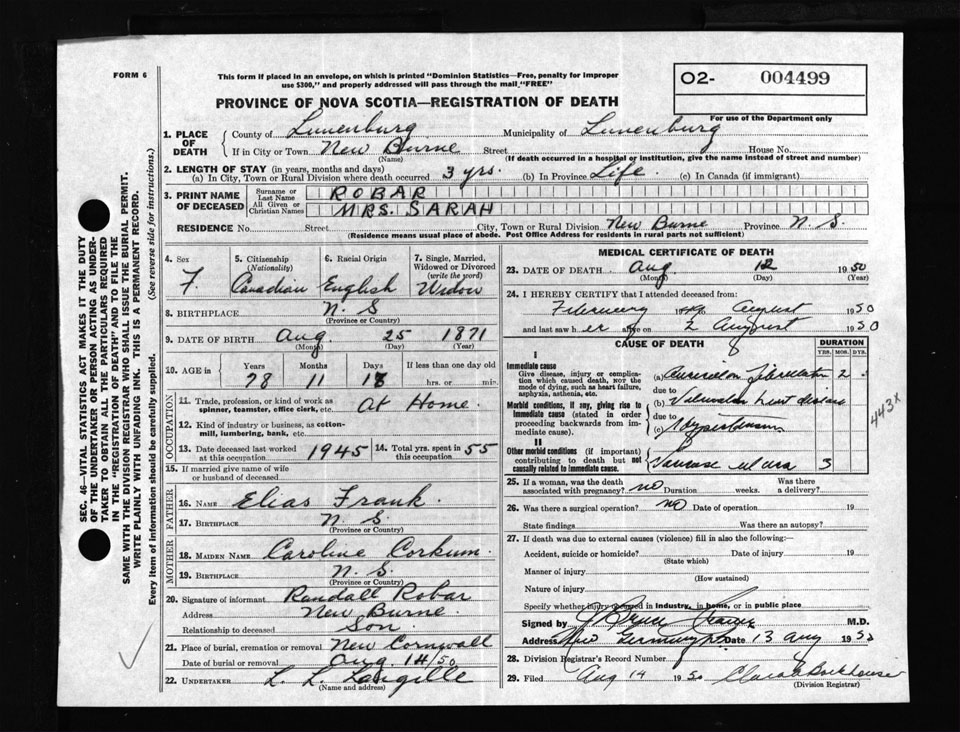 FORM 6
This form if placed in an envelope, on which is printed "Dominion Statistics—Free, penalty for improper
use $300," and properly addressed will pass through the mail "FREE"
O2- 004499
For use of the Department only
PROVINCE OF NOVA SCOTIA—REGISTRATION OF DEATH
1. PLACE OF DEATH
County of Lunenburg Municipality of Lunenburg
If in City or Town New Burne Street House No.
(Name) (If death occurred in a hospital or institution, give the name instead of street and number)
2. LENGTH OF STAY (in years, months and days)
(a) In City, Town or Rural Division where death occurred 3 yrs. (b) In Province Life. (c) In Canada (if immigrant)
3. PRINT NAME OF DECEASED
Surname or Last Name ROBAR
All Given or Christian Names MRS. SARAH
RESIDENCE No. Street City, Town or Rural Division New Burne Province N. S.
(Residence means usual place of abode. Post Office Address for residents in rural parts not sufficient)
4. Sex F
5. Citizenship (Nationality) Canadian
6. Racial Origin English
7. Single, Married, Widowed or Divorced (write the word) Widow
8. BIRTHPLACE N. S
(Province or Country)
9. DATE OF BIRTH Aug. 25 1871
(Month) (Day) (Year)
10. AGE in Years Months Days If less than one day old
78 11 18 hrs. or min.
OCCUPATION
11. Trade, profession or kind of work as spinner, teamster, office clerk, etc. At Home.
12. Kind of industry or business, as cotton-mill, lumbering, bank, etc.
13. Date deceased last worked at this occupation 1945 14. Total yrs. spent in this occupation 55
15. If married give name of wife or husband of deceased
FATHER
16. NAME Elias Frank.
17. BIRTHPLACE N. S
(Province or Country)
MOTHER
18. MAIDEN NAME Caroline Corkum.
19. BIRTHPLACE N. S.
(Province or Country)
20. Signature of informant Randall Robar
Address New Burne.
Relationship to deceased Son
21. Place of burial, cremation or removal New Cornwall
Date of burial or removal Aug. 14/50
22. UNDERTAKER L. L. Langille
(Name and address)
MEDICAL CERTIFICATE OF DEATH
23. DATE OF DEATH Aug 12 1950
(Month) (Day) (Year)
24. I HEREBY CERTIFY that I attended deceased from:
February to August 1950
and last saw her alive on 2 August 1950
CAUSE OF DEATH
DURATION
YRS. MOS. DYS.
I
Immediate cause
Give disease, injury or complication which caused death, not the mode of dying, such as heart failure, asphyxia, asthenia, etc.
(a) Auricular fibrillation 2
due to
Morbid conditions, if any, giving rise to immediate cause (stated in order proceeding backwards from immediate cause).
(b) heart disease
due to
(c) Hypertension
443X
II
Other morbid conditions (if important) contributing to death but not causally related to immediate cause.
ulcer 3
25. If a woman, was the death associated with pregnancy? no Duration weeks. Was there a delivery?
26. Was there a surgical operation? no Date of operation 19
State findings Was there an autopsy?
27. If death was due to external causes (violence) fill in also the following:—
Accident, suicide or homicide? Date of injury 19
(State which)
Manner of injury
(How sustained)
Nature of injury
Specify whether injury occurred in industry, in home, or in public place
Signed by M.D.
Address New Germany NS Date 13 Aug 1950
28. Division Registrar's Record Number
29. Filed Aug 14 1950
(Division Registrar)
SEC. 46—VITAL STATISTICS ACT MAKES IT THE DUTY
OF THE UNDERTAKER OR PERSON ACTING AS UNDER-
TAKER TO OBTAIN ALL THE PARTICULARS REQUIRED
IN THE "REGISTRATION OF DEATH" AND TO FILE THE
SAME WITH THE DIVISION REGISTRAR WHO SHALL ISSUE THE BURIAL PERMIT.
WRITE PLAINLY WITH UNFADING INK. THIS IS A PERMANENT RECORD.
Every item of information should be carefully supplied. (See reverse side for instructions.)